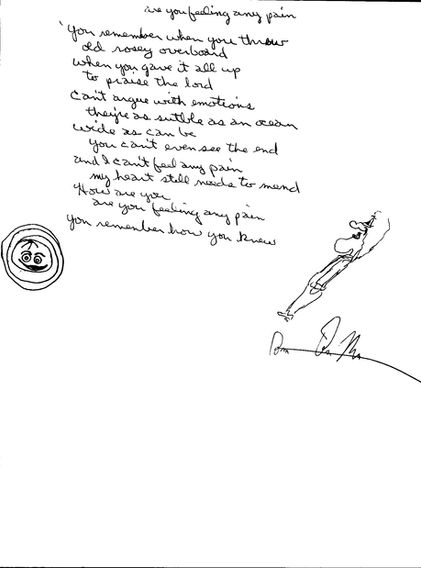 are you feeling any pain
you remember when you throw
old rosey overboard
when you gave it all up
to praise the lord
can't argue with emotions
they're as sutble as an ocean
wide as can be
you can't even see the end
and I can't feel any pain
my heart still needs to mend
How are you
are you feeling any pain
you remember how you knew